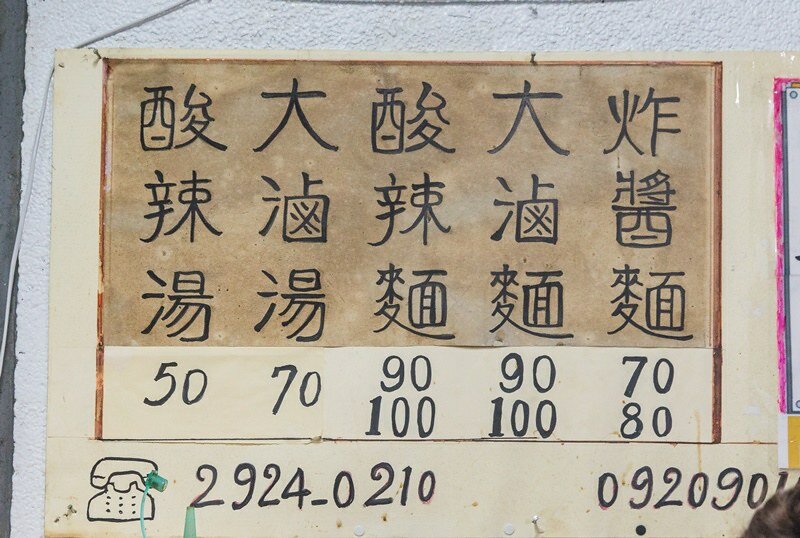 炸醬麵
大滷麵
酸辣麵
大滷湯
酸辣湯
70
80
90
100
90
100
70
50
2924-0210
092090